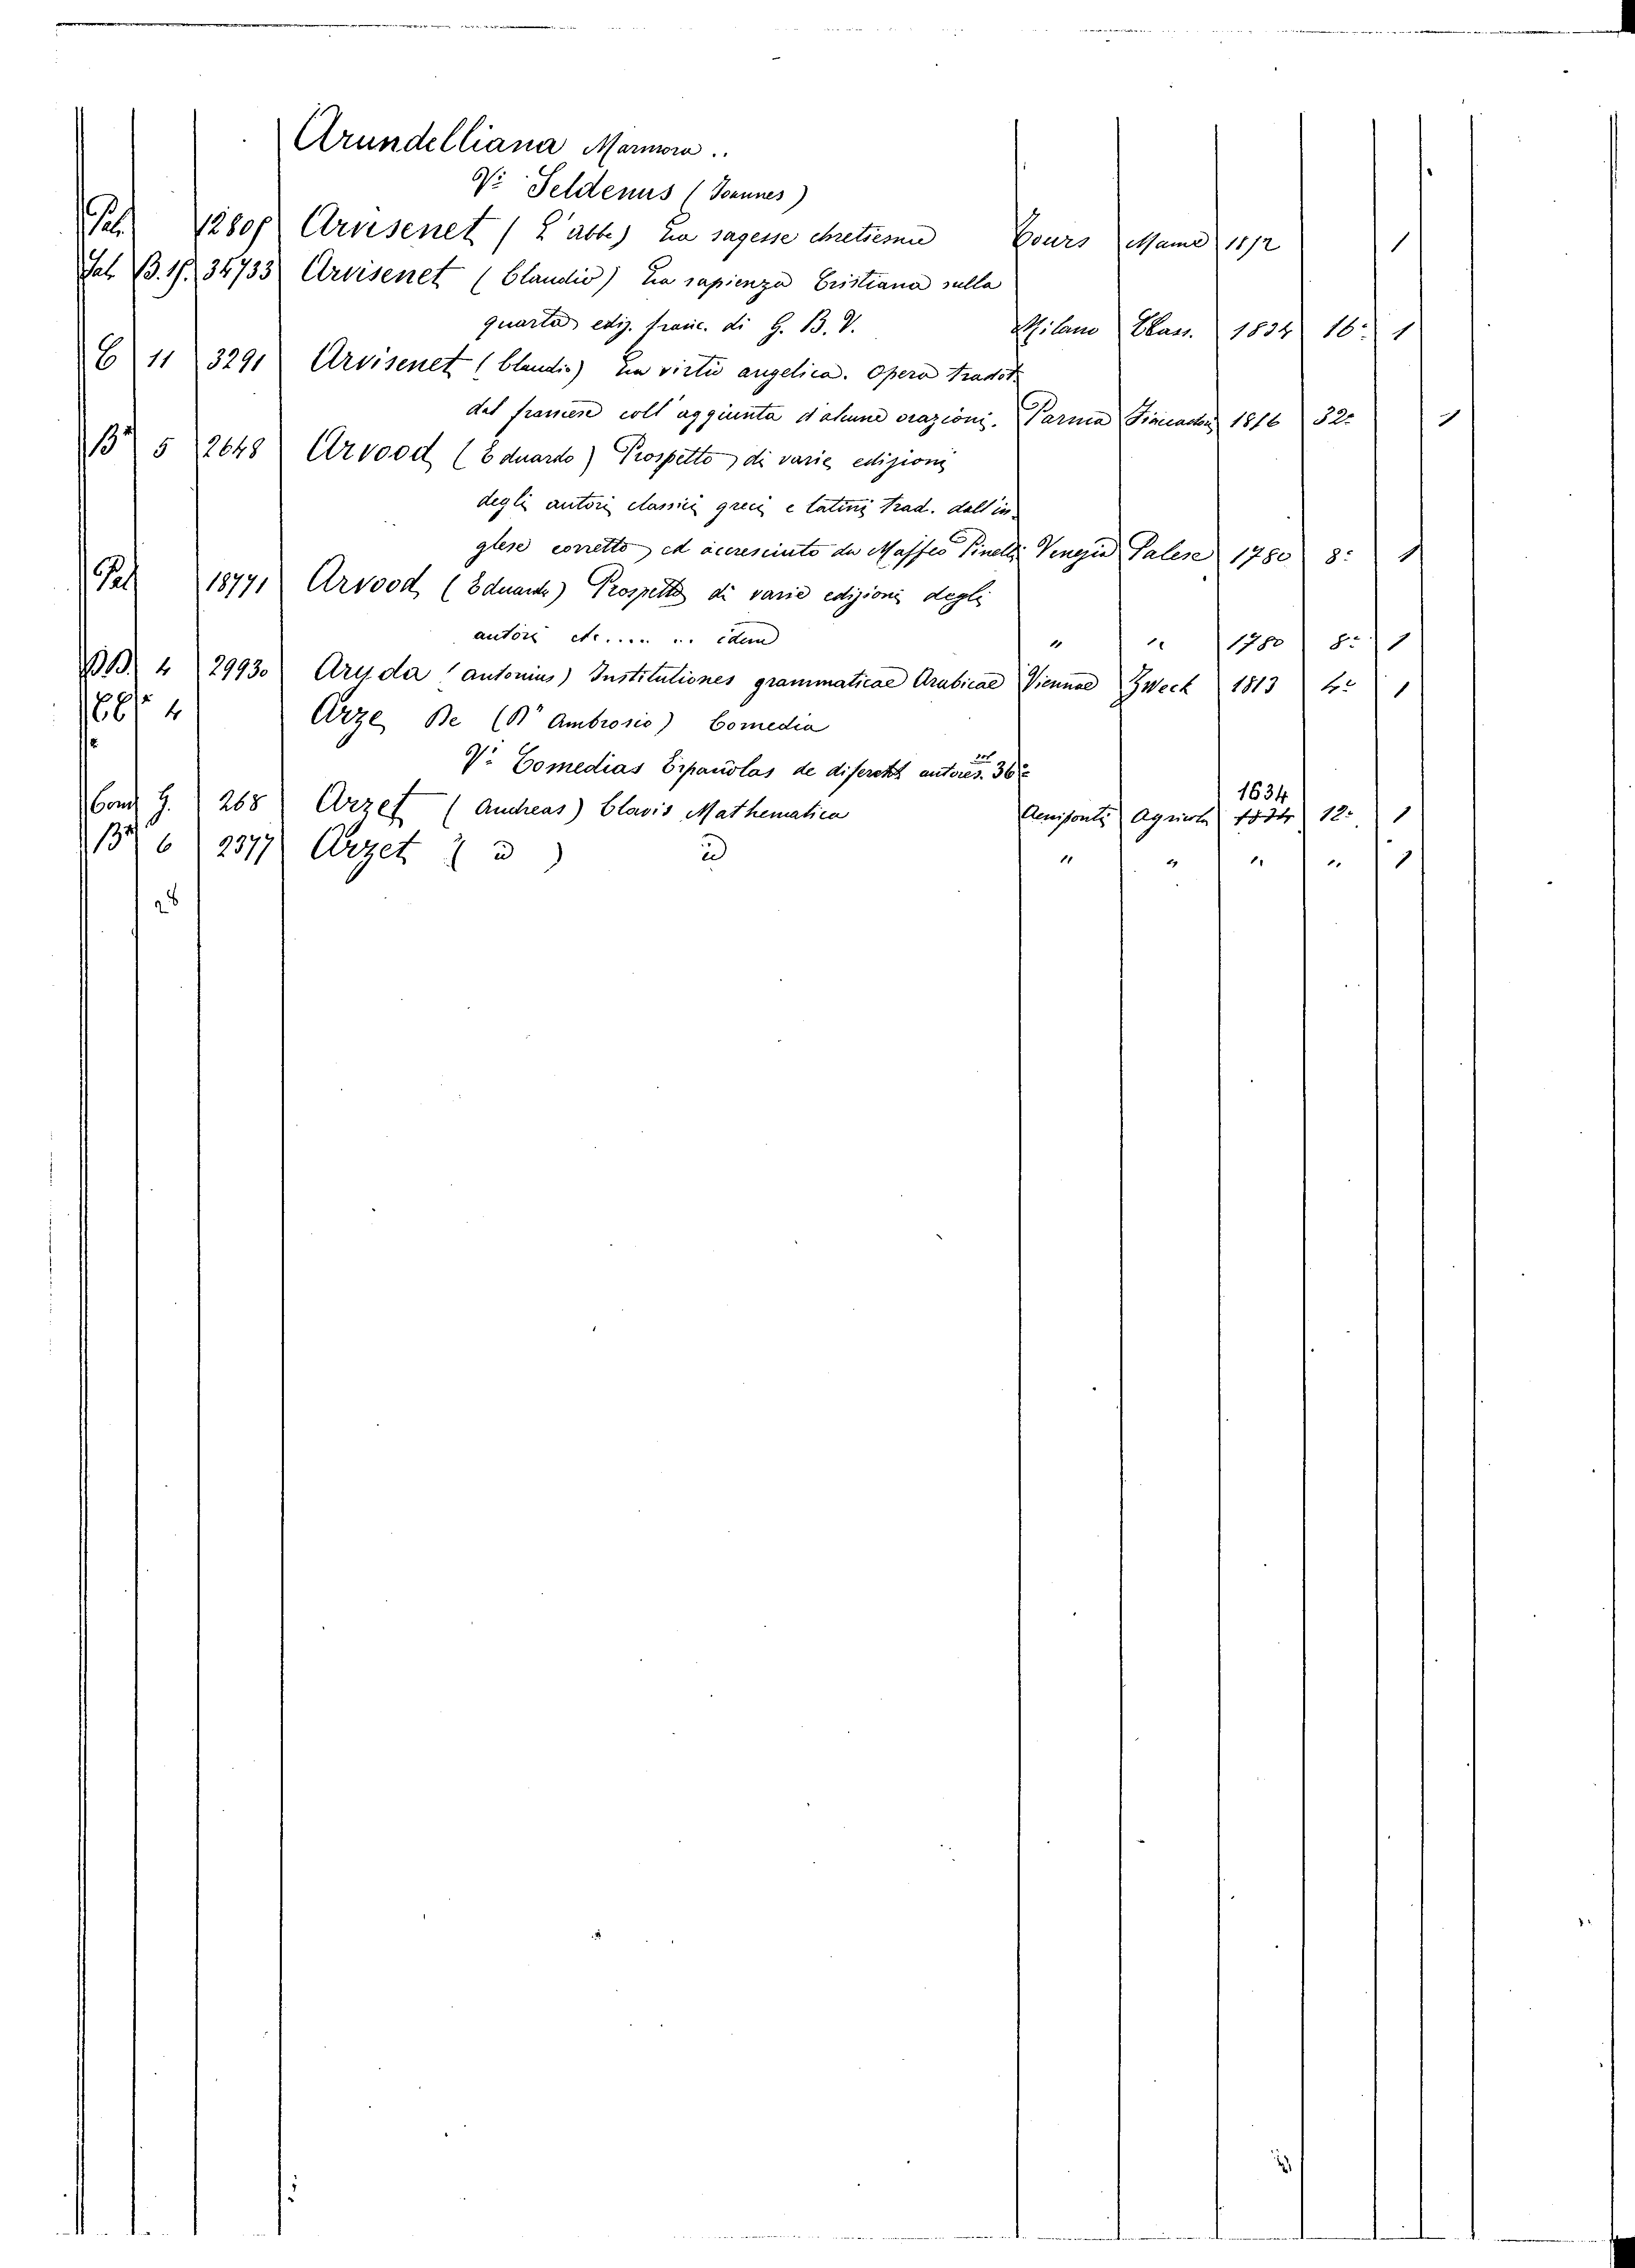 Arundelliana Marmora ..
V: Seldenus (Joannes)
Pal. 12805 Arvisenet (L'abbé) La sagesse chretienne Tours Mame 1812 1
Sal. B. 1f. 34733 Arvisenet (Claudio) La sapienza Cristiana sulla
quarta ediz. franc. di G. B. V. Milano Class. 1834 16: 1
C 11 3291 Arvisenet (Claudio) La virtù angelica. Opera tradot.
dal francese coll' aggiunta d'alcune orazioni. Parma 1816 32: 1
5 2648 Arvood (Eduardo) Prospetto di varie edizioni
degli autori classici greci e latini trad. dall' in-
glese corretto ed accresciuto da Maffeo Pinelli Venezia Palese 1780 8: 1
Pal 18771 Arvood (Eduardo) Prospetto di varie edizioni degli
autori etc..... ... idem " " 1780 8: 1
BB. 4 29930 Aryda (Antonius) Institutiones grammaticae Arabicae Viennae Zweck 1813 4: 1
4 Arze De (Dn Ambrosio) Comedia
V: Comedias Españolas de diferets autores. 36
1634
Com G. 268 Arzet (Andreas) Clavis Mathematica Aeniponti Agricola 12: 1
6 2377 Arzet ( id ) id " " " " 1
28